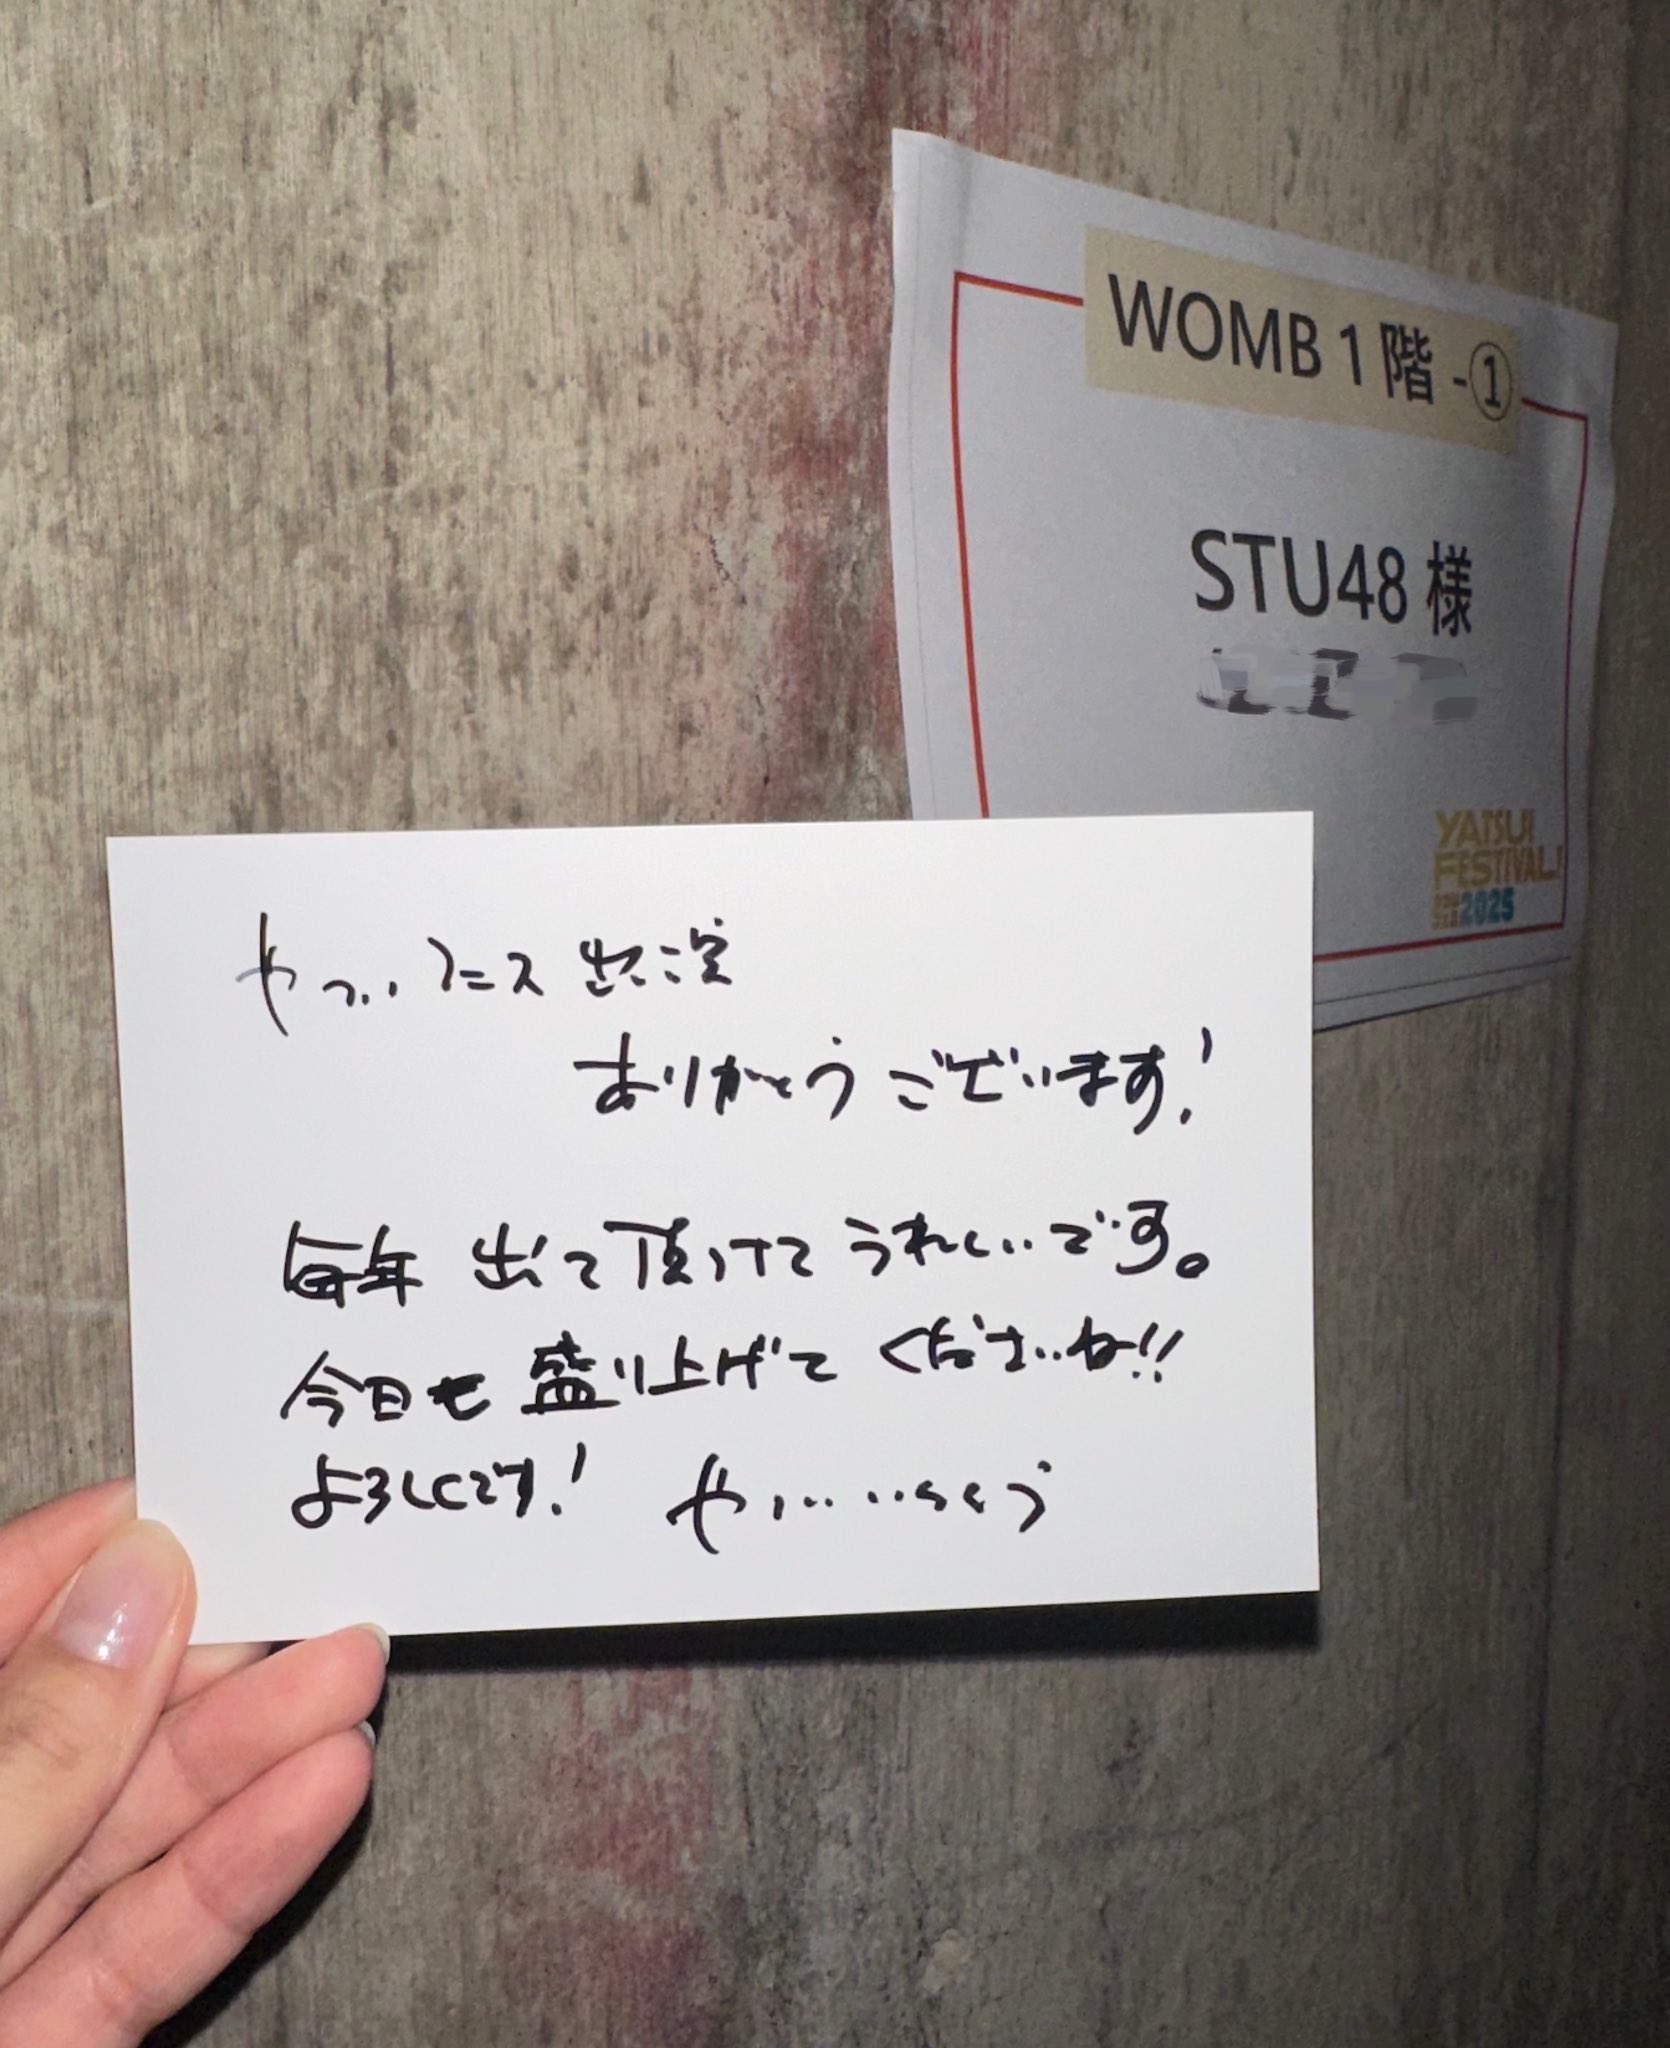 WOMB 1 階 -①
STU48 様
YATSUI
FESTIVAL!
2025
やついフェス 出演
ありがとうございます!
毎年 出て頂けて うれしいです。
今日も 盛り上げて くださいね!!
よろしくです! やついいちろう